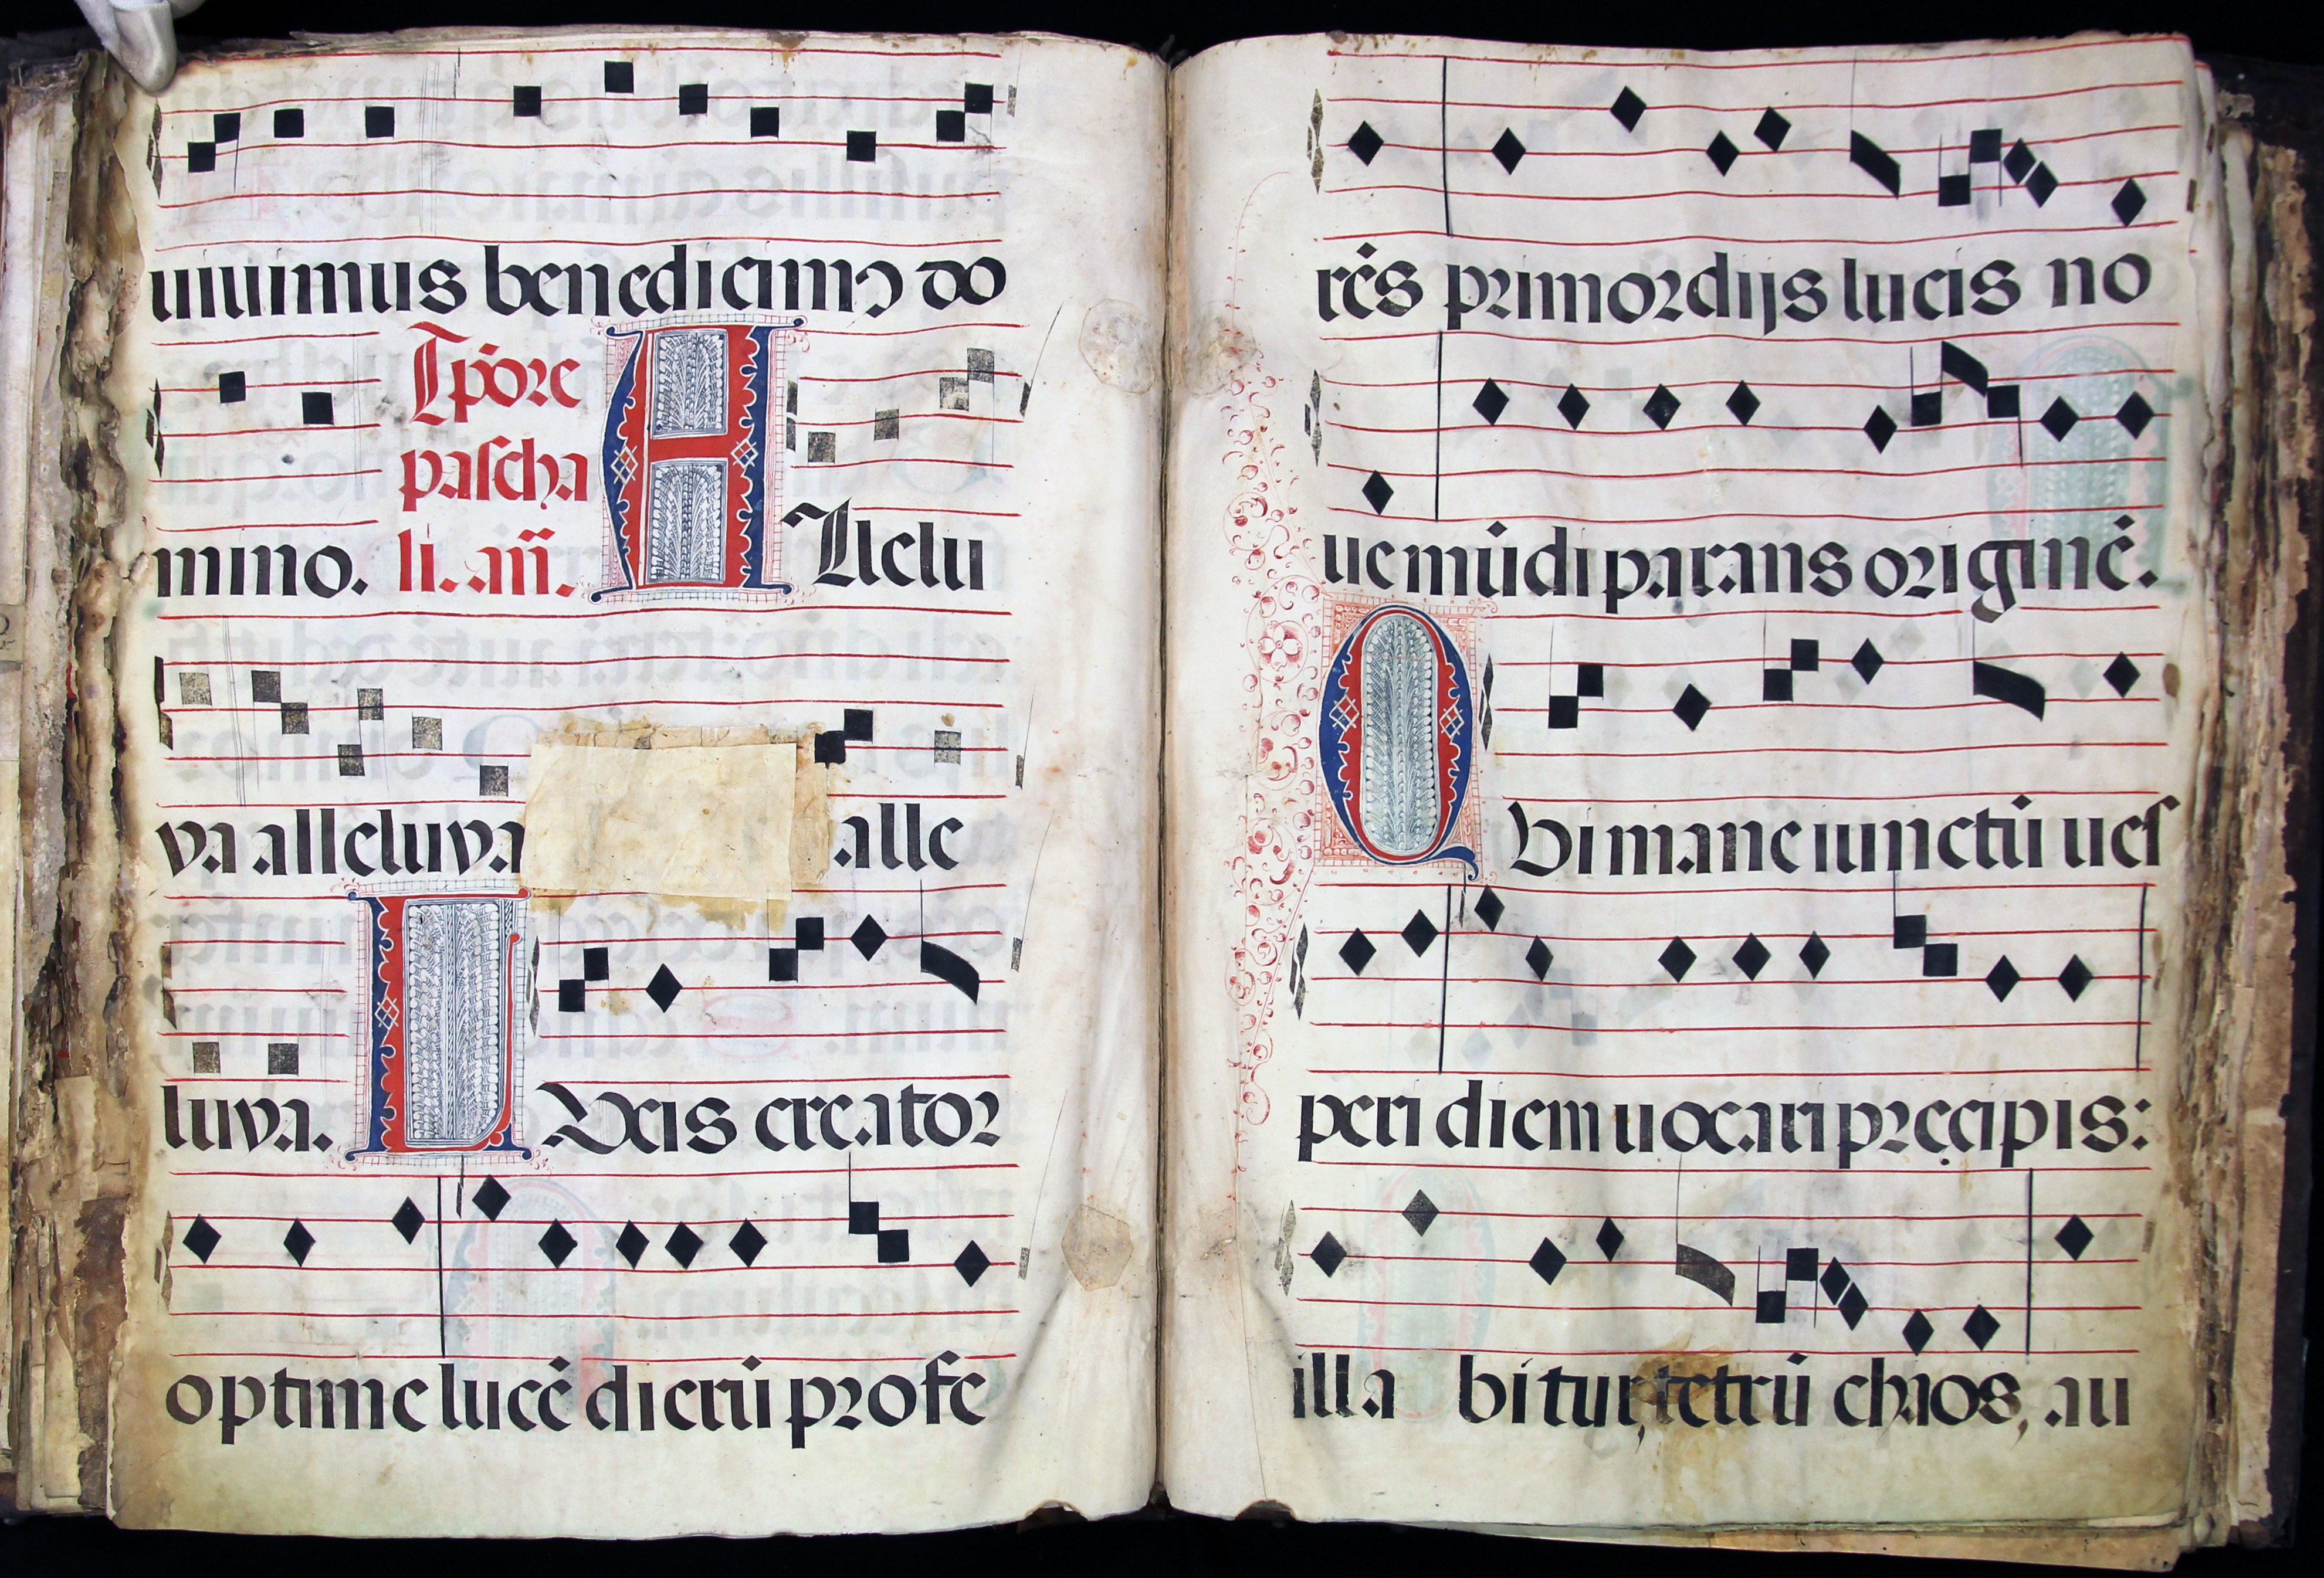 uiuimus benedicimꝰ do
mino. Tp̄ore
pascha
li. añ. Allelu
ya alleluya alle
luya. LUcis creator
optime lucē dierū profe
rēs primordijs lucis no
ue mūdi parans originē.
QUi mane iunctū ues
peri diem uocari pręcipis:
illa bitur, tetrū chaos, au